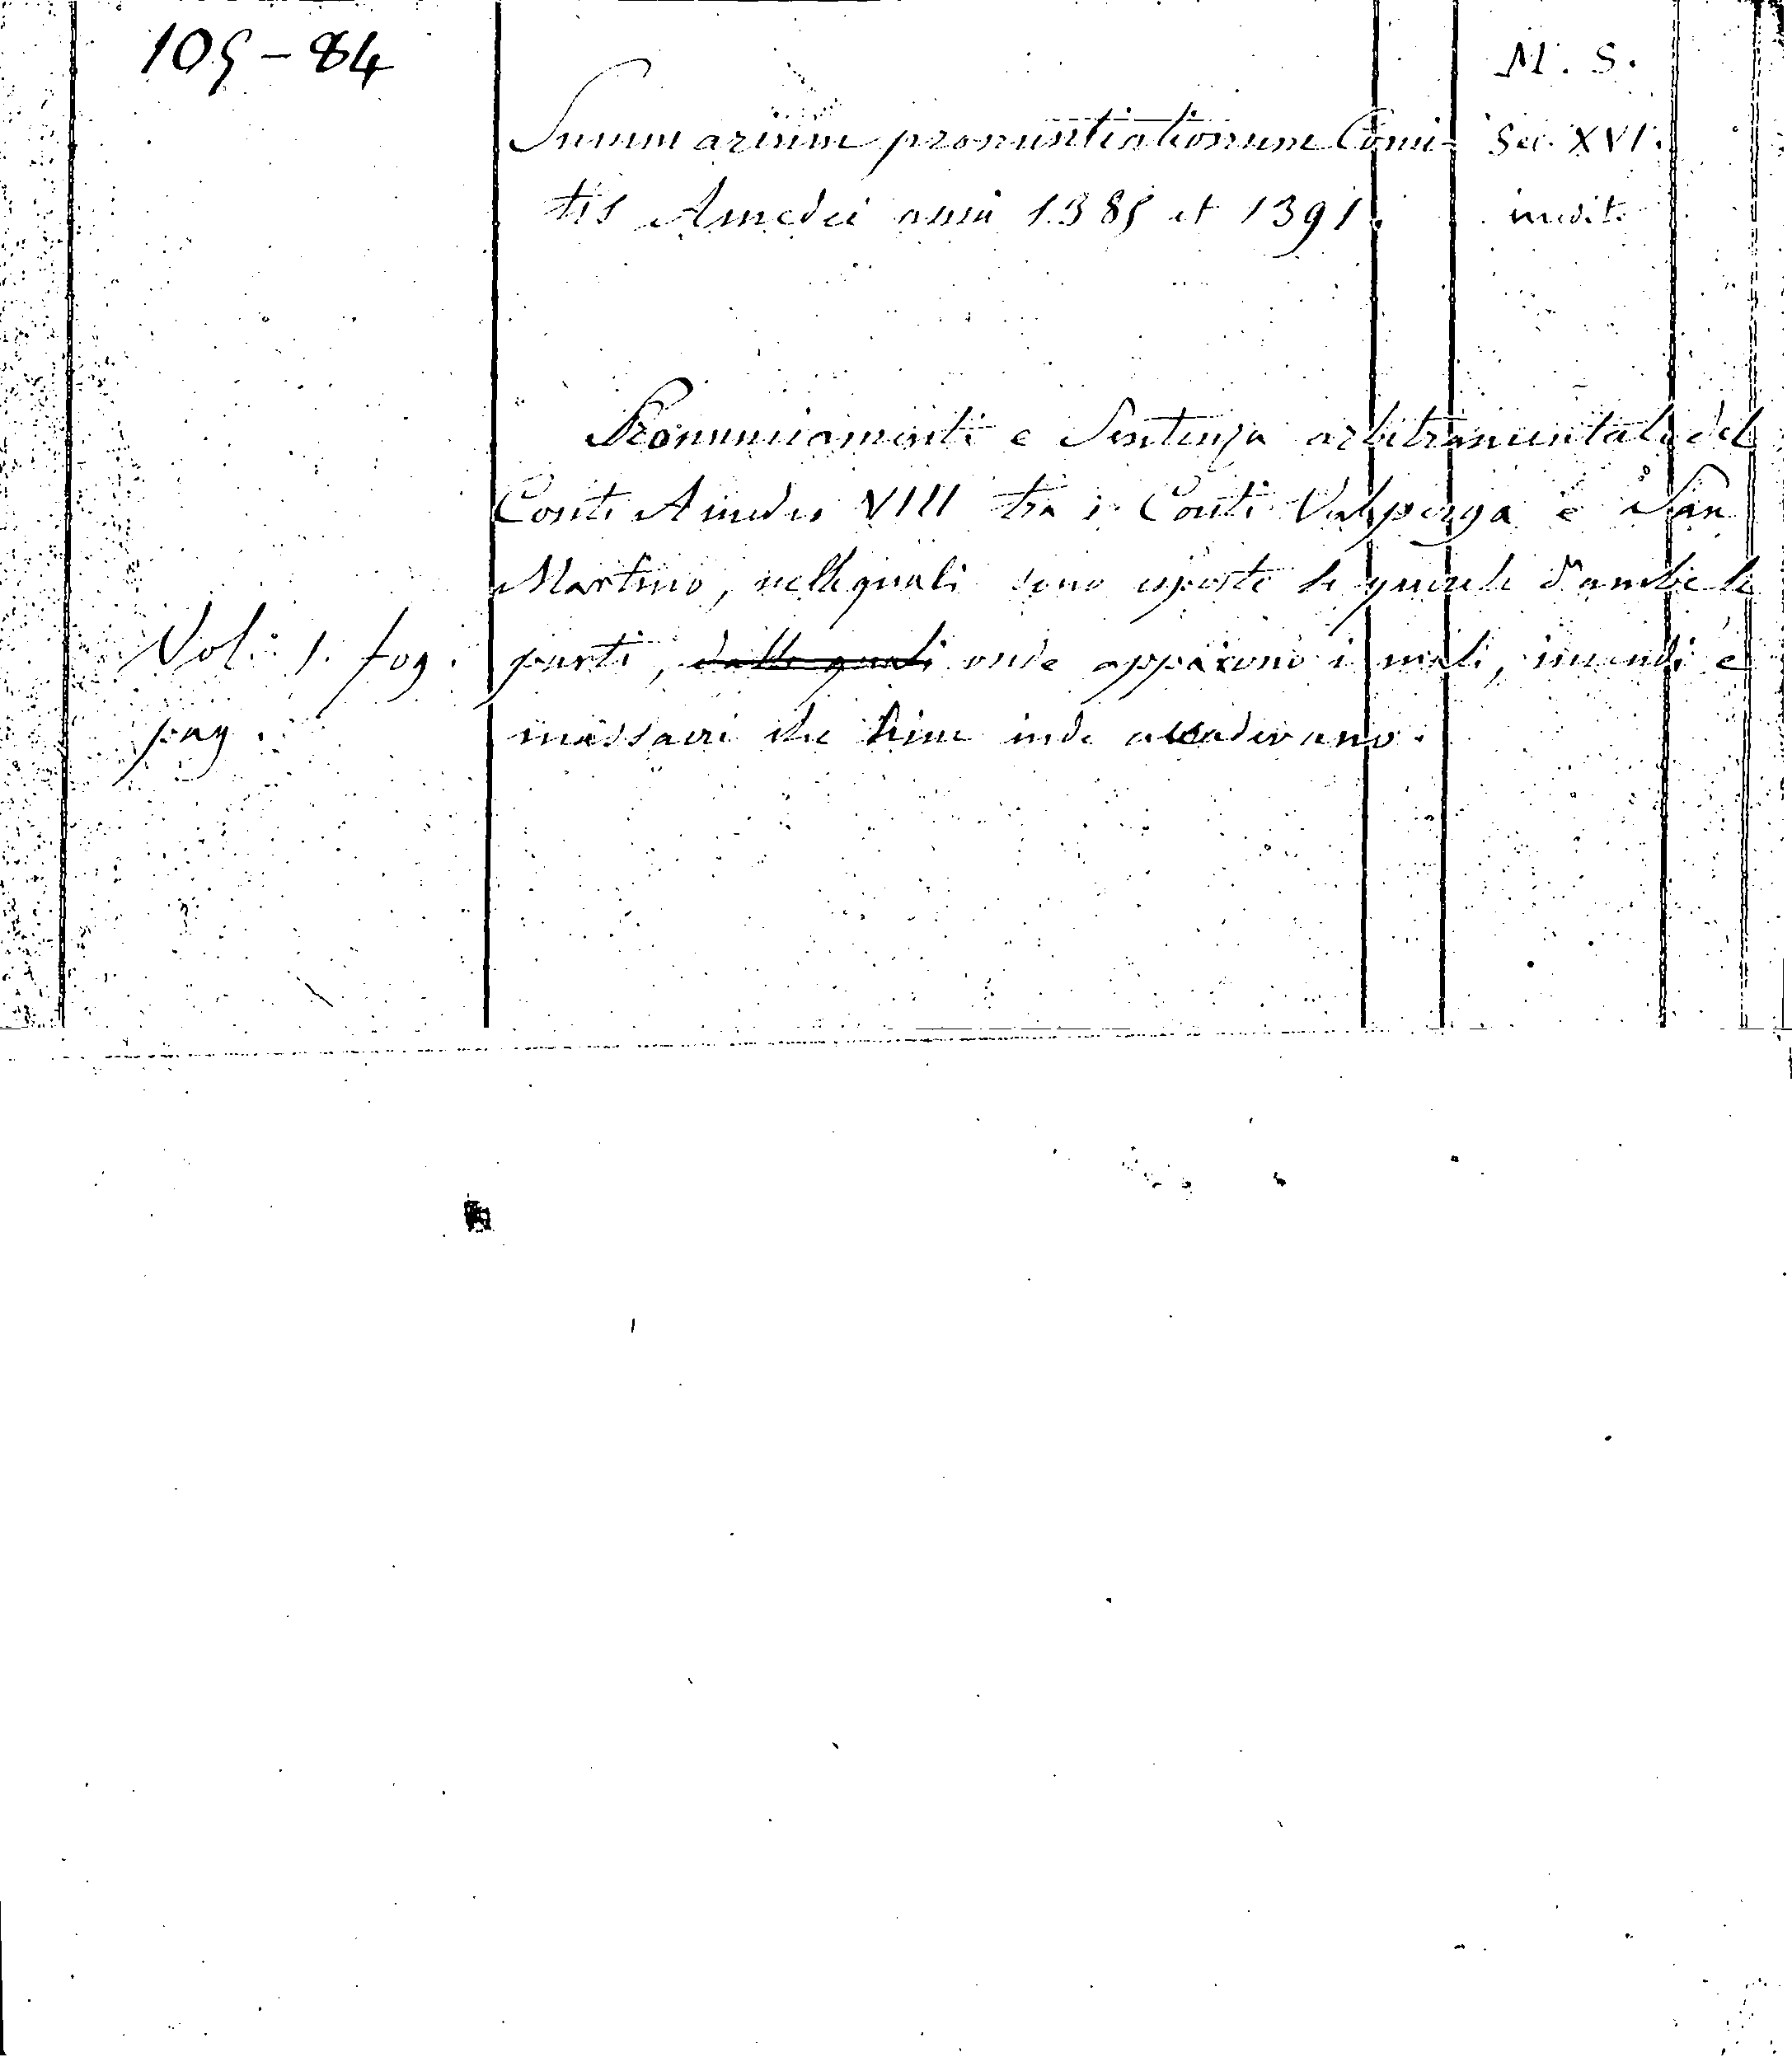 105-84
M. S.
Summarium pronuntiationum Comi-
Sec. XVI.
tis Amedei anni 1385 et 1391.
inedit.
Pronunciamenti e Sentenza arbitramentale del
Conte Amedeo VIII tra i Conti Valperga e San
Martino, nelle quali sono esposte le querele d'ambe le
Vol. 1. fog.
parti, dalle quali onde appariono i mali, incendi e
pag.
massacri che hinc inde accadevano.